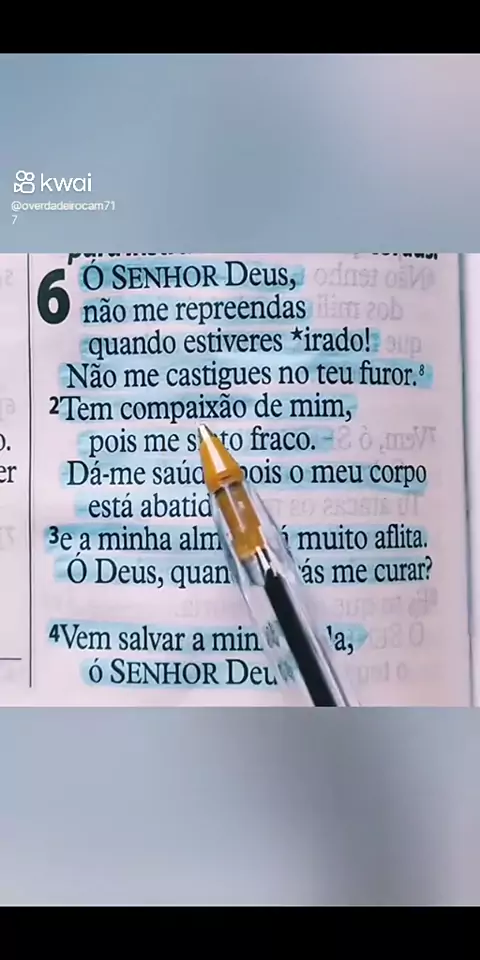 kwai
@overdadeirocam71
7
6 Ó SENHOR Deus,
não me repreendas
quando estiveres *irado!
Não me castigues no teu furor.⁸
²Tem compaixão de mim,
pois me fraco.
Dá-me pois o meu corpo
está
³e a minha muito aflita.
Ó Deus, me curar?
⁴Vem salvar a
ó SENHOR